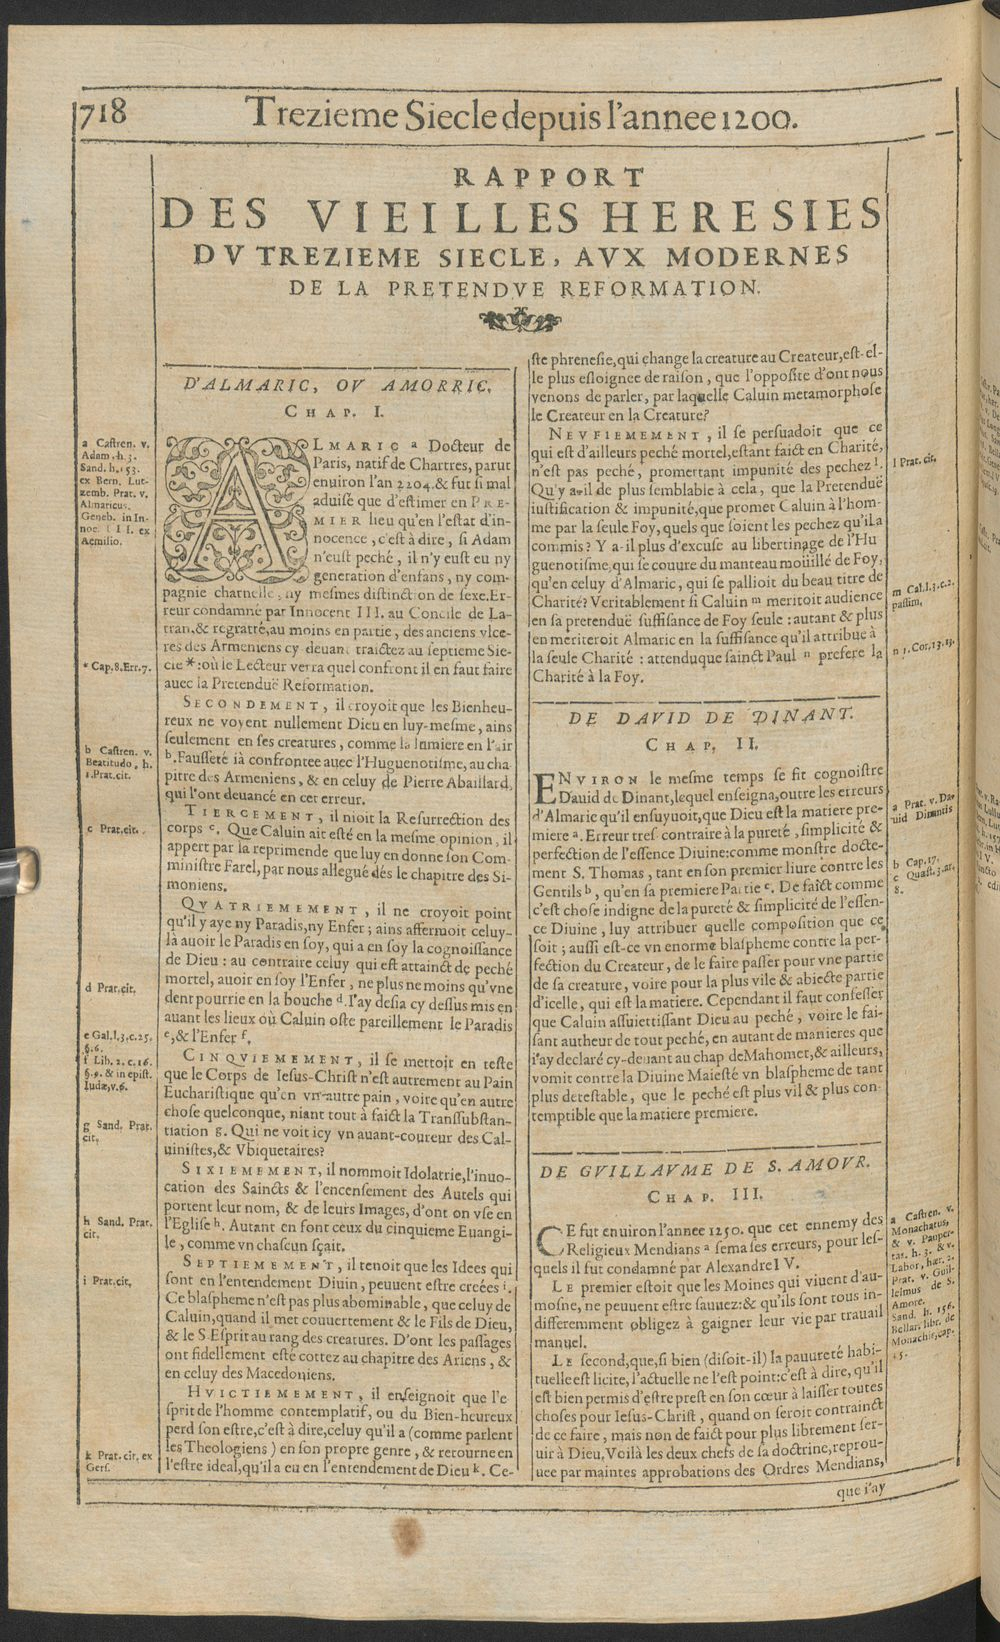 718
Trezieme Siecle depuis l'annee 1200.
RAPPORT
DES VIEILLES HERESIES
DV TREZIEME SIECLE, AVX MODERNES
DE LA PRETENDVE REFORMATION.
D'ALMARIC, OV AMORRIC.
CHAP. I.
ALMARIC a Docteur de
Paris, natif de Chartres, parut
enuiron l'an 2204. & fut si mal
aduisé que d'estimer en PRE-
MIER lieu qu'en l'estat d'in-
nocence, c'est à dire, si Adam
n'eust peché, il n'y eust eu ny
generation d'enfans, ny com-
pagnie charnelle, ny mesmes distinction de sexe. Er-
reur condamné par Innocent III. au Concile de La-
tran, & regratté, au moins en partie, des anciens vlce-
res des Armeniens cy deuant traictez au septieme Sie-
cle *: où le Lecteur verra quel confront il en faut faire
auec la Pretenduë Reformation.
SECONDEMENT, il croyoit que les Bienheu-
reux ne voyent nullement Dieu en luy-mesme, ains
seulement en ses creatures, comme la lumiere en l'air
b. Fausseté ià confrontee auec l'Huguenotisme, au cha-
pitre des Armeniens, & en celuy de Pierre Abaillard,
qui l'ont deuancé en cet erreur.
TIERCEMENT, il nioit la Resurrection des
corps c. Que Caluin ait esté en la mesme opinion, il
appert par la reprimende que luy en donne son Com-
ministre Farel, par nous allegué dés le chapitre des Si-
moniens.
QVATRIEMEMENT, il ne croyoit point
qu'il y aye ny Paradis, ny Enfer; ains affermoit celuy-
là auoir le Paradis en soy, qui a en soy la cognoissance
de Dieu: au contraire celuy qui est attainct de peché
mortel, auoir en soy l'Enfer, ne plus ne moins qu'vne
dent pourrie en la bouche d. I'ay desia cy dessus mis en
auant les lieux où Caluin oste pareillement le Paradis
e, & l'Enfer f.
CINQVIEMEMENT, il se mettoit en teste
que le Corps de Iesus-Christ n'est autrement au Pain
Eucharistique qu'en vn autre pain, voire qu'en autre
chose quelconque, niant tout à faict la Transsubstan-
tiation g. Qui ne voit icy vn auant-coureur des Cal-
uinistes, & Vbiquetaires?
SIXIEMEMENT, il nommoit Idolatrie, l'inuo-
cation des Saincts & l'encensement des Autels qui
portent leur nom, & de leurs Images, d'ont on vse en
l'Eglise h. Autant en font ceux du cinquieme Euangi-
le, comme vn chascun sçait.
SEPTIEMEMENT, il tenoit que les Idees qui
sont en l'entendement Diuin, peuuent estre creées i.
Ce blaspheme n'est pas plus abominable, que celuy de
Caluin, quand il met couuertement & le Fils de Dieu,
& le S. Esprit au rang des creatures. D'ont les passages
ont fidellement esté cottez au chapitre des Ariens, &
en celuy des Macedoniens.
HVICTIEMEMENT, il enseignoit que l'e
sprit de l'homme contemplatif, ou du Bien-heureux
perd son estre, c'est à dire, celuy qu'il a (comme parlent
les Theologiens) en son propre genre, & retourne en
l'estre ideal, qu'il a eu en l'entendement de Dieu k. Ce-
a Castren. v.
Adam. h. 3.
Sand. h. 153.
ex Bern. Lut-
zemb. Prat. v.
Almaricus.
Geneb. in In-
noc. III. ex
Aemilio.
* Cap. 8. Err. 7.
b Castren. v.
Beatitudo, h.
1. Prat. cit.
c Prat. cit.
d Prat. cit.
e Gal. l. 3. c. 25.
§. 6.
f Lib. 2. c. 16.
§. 9. & in epist.
Iudæ, v. 6.
g Sand. Prat.
cit.
h Sand. Prat.
cit.
i Prat. cit.
k Prat. cit. ex
Gers.
ste phrenesie, qui change la creature au Createur, est-el-
le plus esloignee de raison, que l'opposite d'ont nous
venons de parler, par laquelle Caluin metamorphose
le Createur en la Creature?
NEVFIEMEMENT, il se persuadoit que ce
qui est d'ailleurs peché mortel, estant faict en Charité,
n'est pas peché, promettant impunité des pechez l.
Qu'y a-il de plus semblable à cela, que la Pretenduë
iustification & impunité, que promet Caluin à l'hom-
me par la seule Foy, quels que soient les pechez qu'il a
commis? Y a-il plus d'excuse au libertinage de l'Hu
guenotisme, qui se couure du manteau moüillé de Foy,
qu'en celuy d'Almaric, qui se pallioit du beau titre de
Charité? Veritablement si Caluin m meritoit audience
en sa pretenduë suffisance de Foy seule: autant & plus
en meriteroit Almaric en la suffisance qu'il attribue à
la seule Charité: attenduque sainct Paul n prefere la
Charité à la Foy.
DE DAVID DE DINANT.
CHAP. II.
ENVIRON le mesme temps se fit cognoistre
Dauid de Dinant, lequel enseigna, outre les erreurs
d'Almaric qu'il ensuyuoit, que Dieu est la matiere pre-
miere a. Erreur tres contraire à la pureté, simplicité &
perfection de l'essence Diuine: comme monstre docte-
ment S. Thomas, tant en son premier liure contre les
Gentils b, qu'en sa premiere Partie c. De faict comme
c'est chose indigne de la pureté & simplicité de l'essen-
ce Diuine, luy attribuer quelle composition que ce
soit; aussi est-ce vn enorme blaspheme contre la per-
fection du Createur, de le faire passer pour vne partie
de sa creature, voire pour la plus vile & abiecte partie
d'icelle, qui est la matiere. Cependant il faut confesser
que Caluin assuiettissant Dieu au peché, voire le fai-
sant autheur de tout peché, en autant de manieres que
i'ay declaré cy-deuant au chap de Mahomet, & ailleurs,
vomit contre la Diuine Maiesté vn blaspheme de tant
plus detestable, que le peché est plus vil & plus con-
temptible que la matiere premiere.
DE GVILLAVME DE S. AMOVR.
CHAP. III.
CE fut enuiron l'annee 1250. que cet ennemy des
Religieux Mendians a sema ses erreurs, pour les-
quels il fut condamné par Alexandre IV.
LE premier estoit que les Moines qui viuent d'au-
mosne, ne peuuent estre sauuez: & qu'ils sont tous in-
differemment obligez à gaigner leur vie par trauail
manuel.
LE second, que, si bien (disoit-il) la pauureté habi-
tuelle est licite, l'actuelle ne l'est point: c'est à dire, qu'il
est bien permis d'estre prest en son cœur à laisser toutes
choses pour Iesus-Christ, quand on seroit contrainct
de ce faire, mais non de faict pour plus librement ser-
uir à Dieu. Voilà les deux chefs de sa doctrine, reprou-
uee par maintes approbations des Ordres Mendians,
que i'ay
l Prat. cit.
m Cal. l. 3. c. 2.
passim.
n 1. Cor. 13. 13.
a Prat. v. Da-
uid Dinantis
b Cap. 17.
c Quæst. 3. ar.
8.
a Castren. v.
Monachatus,
& v. Pauper-
tas. h. 3. & v.
Labor, hær. 2.
Prat. v. Guil-
lelmus de S.
Amore.
Sand. h. 156.
Bellar. libr. de
Monachis, cap.